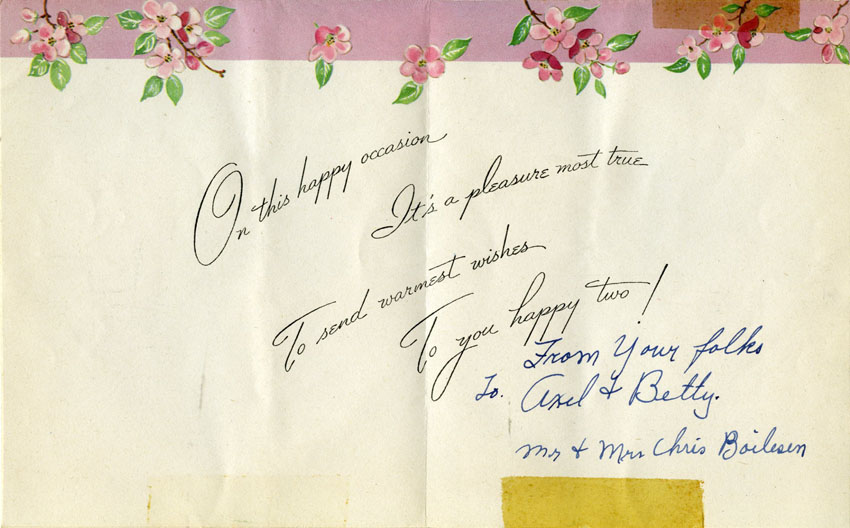 On this happy occasion
It's a pleasure most true
To send warmest wishes
To you happy two!
From Your folks
To. Axel & Betty.
Mr & Mrs Chris Boilesen